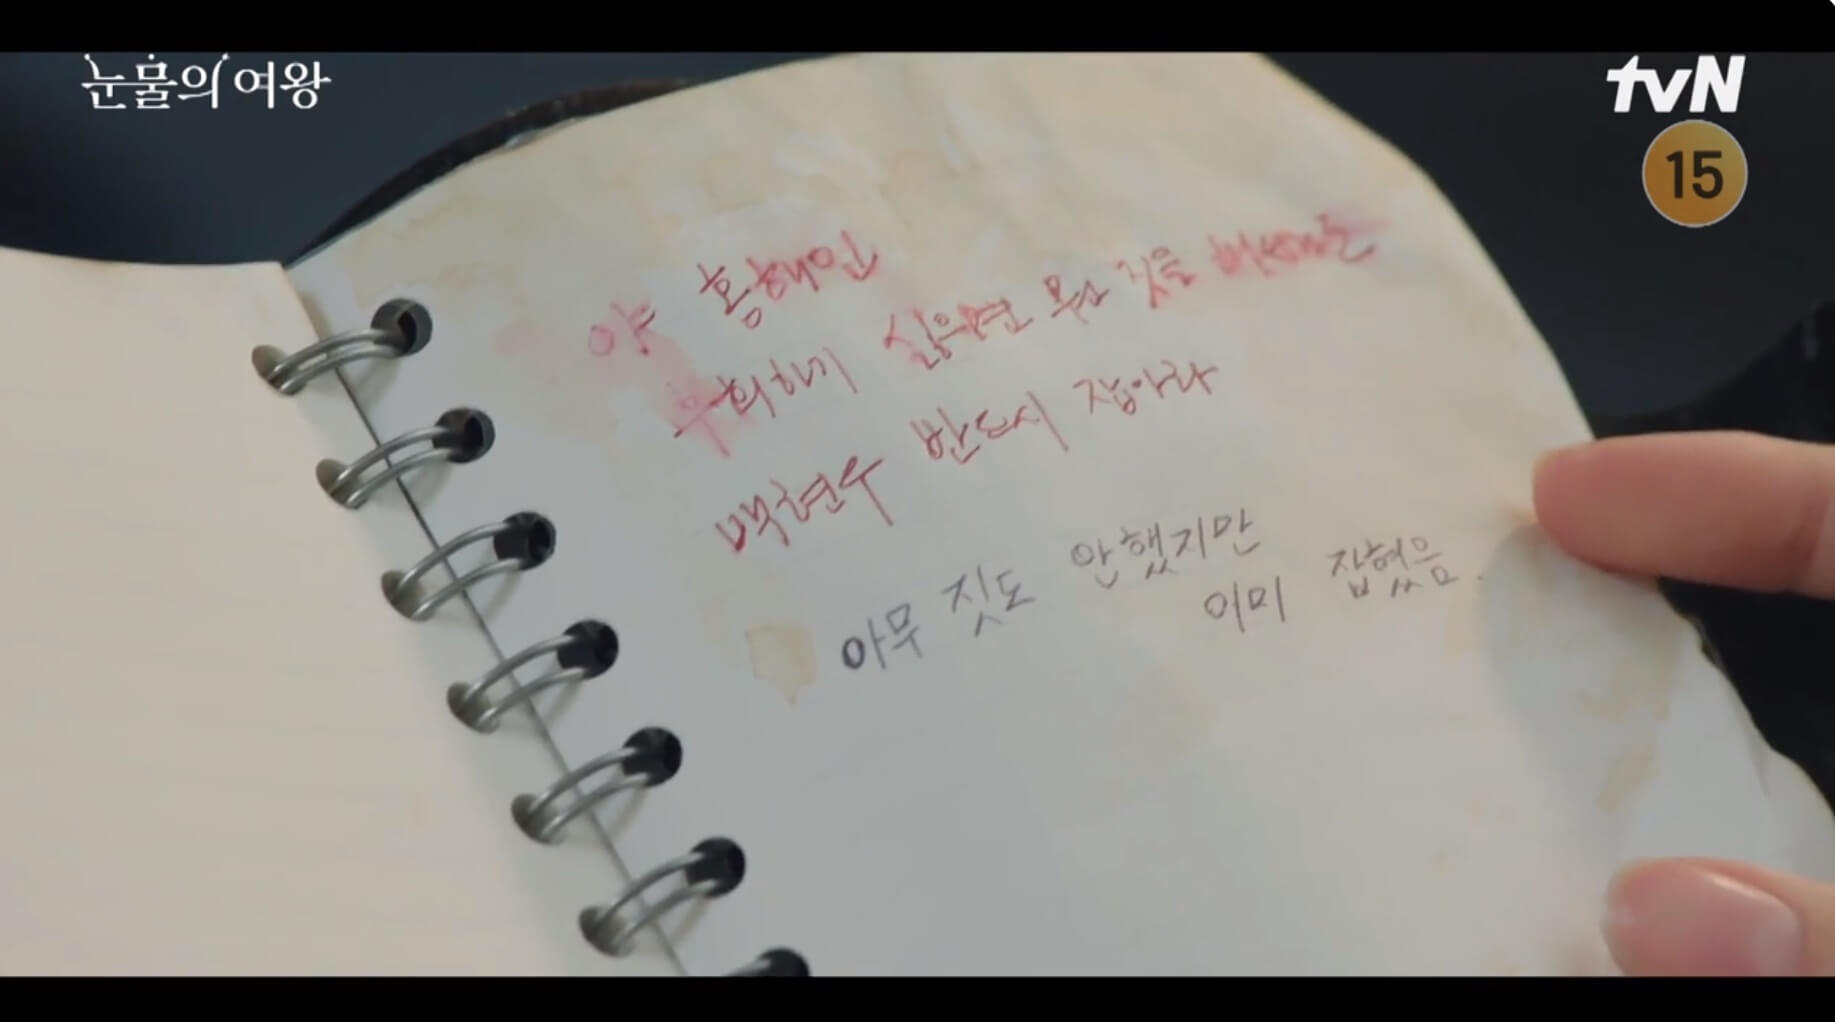 눈물의 여왕
tvN
15
야 홍해인
후회하기 싫으면 뭔 짓을 해서라도
백현우 반드시 잡아라
아무 짓도 안했지만
이미 잡혔음.